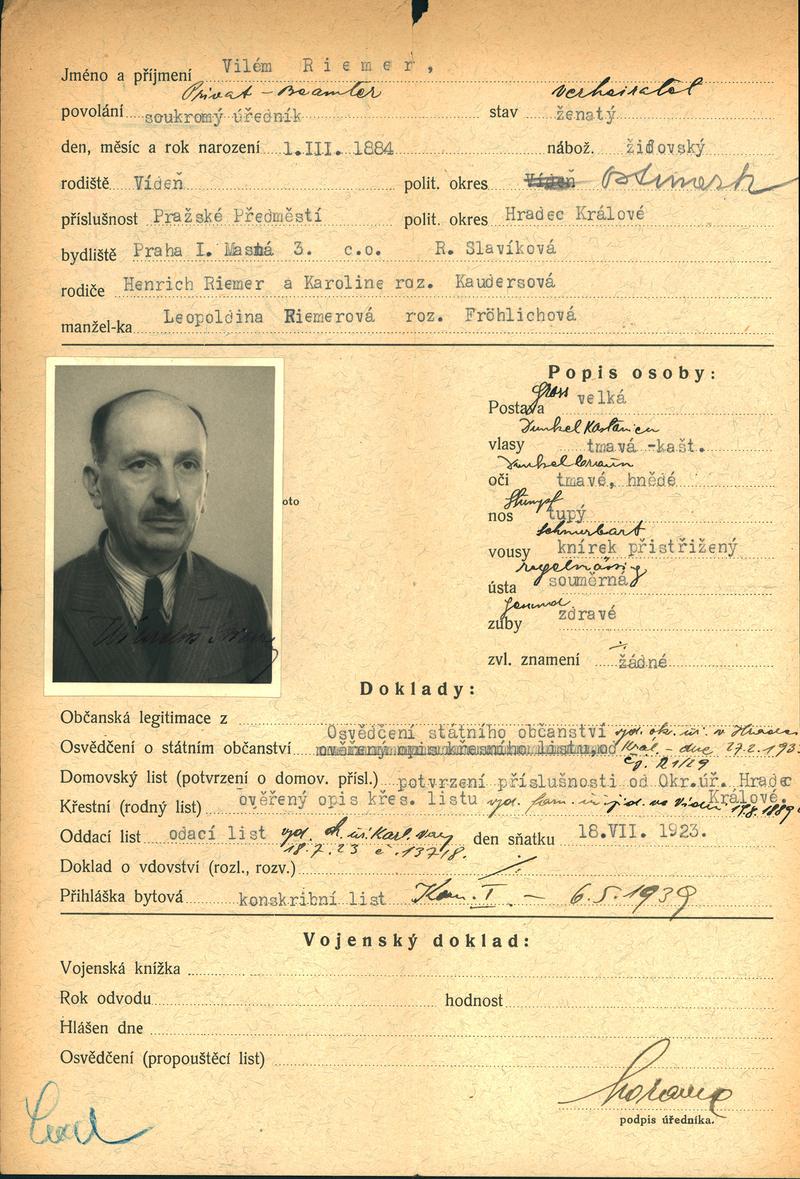 Jméno a příjmení Vilém Riemer,
Privat-Beamter verheiratet
povolání soukromý úředník stav ženatý
den, měsíc a rok narození 1.III. 1884 nábož. židovský
rodiště Vídeň polit. okres Vídeň Ostmark
příslušnost Pražské Předměstí polit. okres Hradec Králové
bydliště Praha I. Masná 3. c.o. R. Slavíková
rodiče Henrich Riemer a Karoline roz. Kaudersová
manžel-ka Leopoldina Riemerová roz. Fröhlichová
Popis osoby:
Gross
Postava velká
Dunkel Kastanien
vlasy tmavá -kašt.
Dunkelbraun
oči tmavé, hnědé
oto
Stumpf
nos tupý
Schnurbart
vousy knírek přistřižený
regelmässig
ústa souměrná
Gesund
zuby zdravé
zvl. znamení žádné
Doklady:
Občanská legitimace z
Osvědčení státního občanství vyd. ok. úř. v Hradci
Osvědčení o státním občanství ověřený opis křesního listu, od Král. - dne 27.2.193
čp. R1/29
Domovský list (potvrzení o domov. přísl.) potvrzení příslušnosti od Okr.úř. Hradec
Králové.
Křestní (rodný list) ověřený opis křes. listu vyd. 17.8.1889
Oddací list odací list vyd. den sňatku 18.VII. 1923.
18.7.23 č. 13718.
Doklad o vdovství (rozl., rozv.)
Přihláška bytová konskribní list Kon. I. - 6.5.1939
Vojenský doklad:
Vojenská knížka
Rok odvodu hodnost
Hlášen dne
Osvědčení (propouštěcí list)
podpis úředníka.